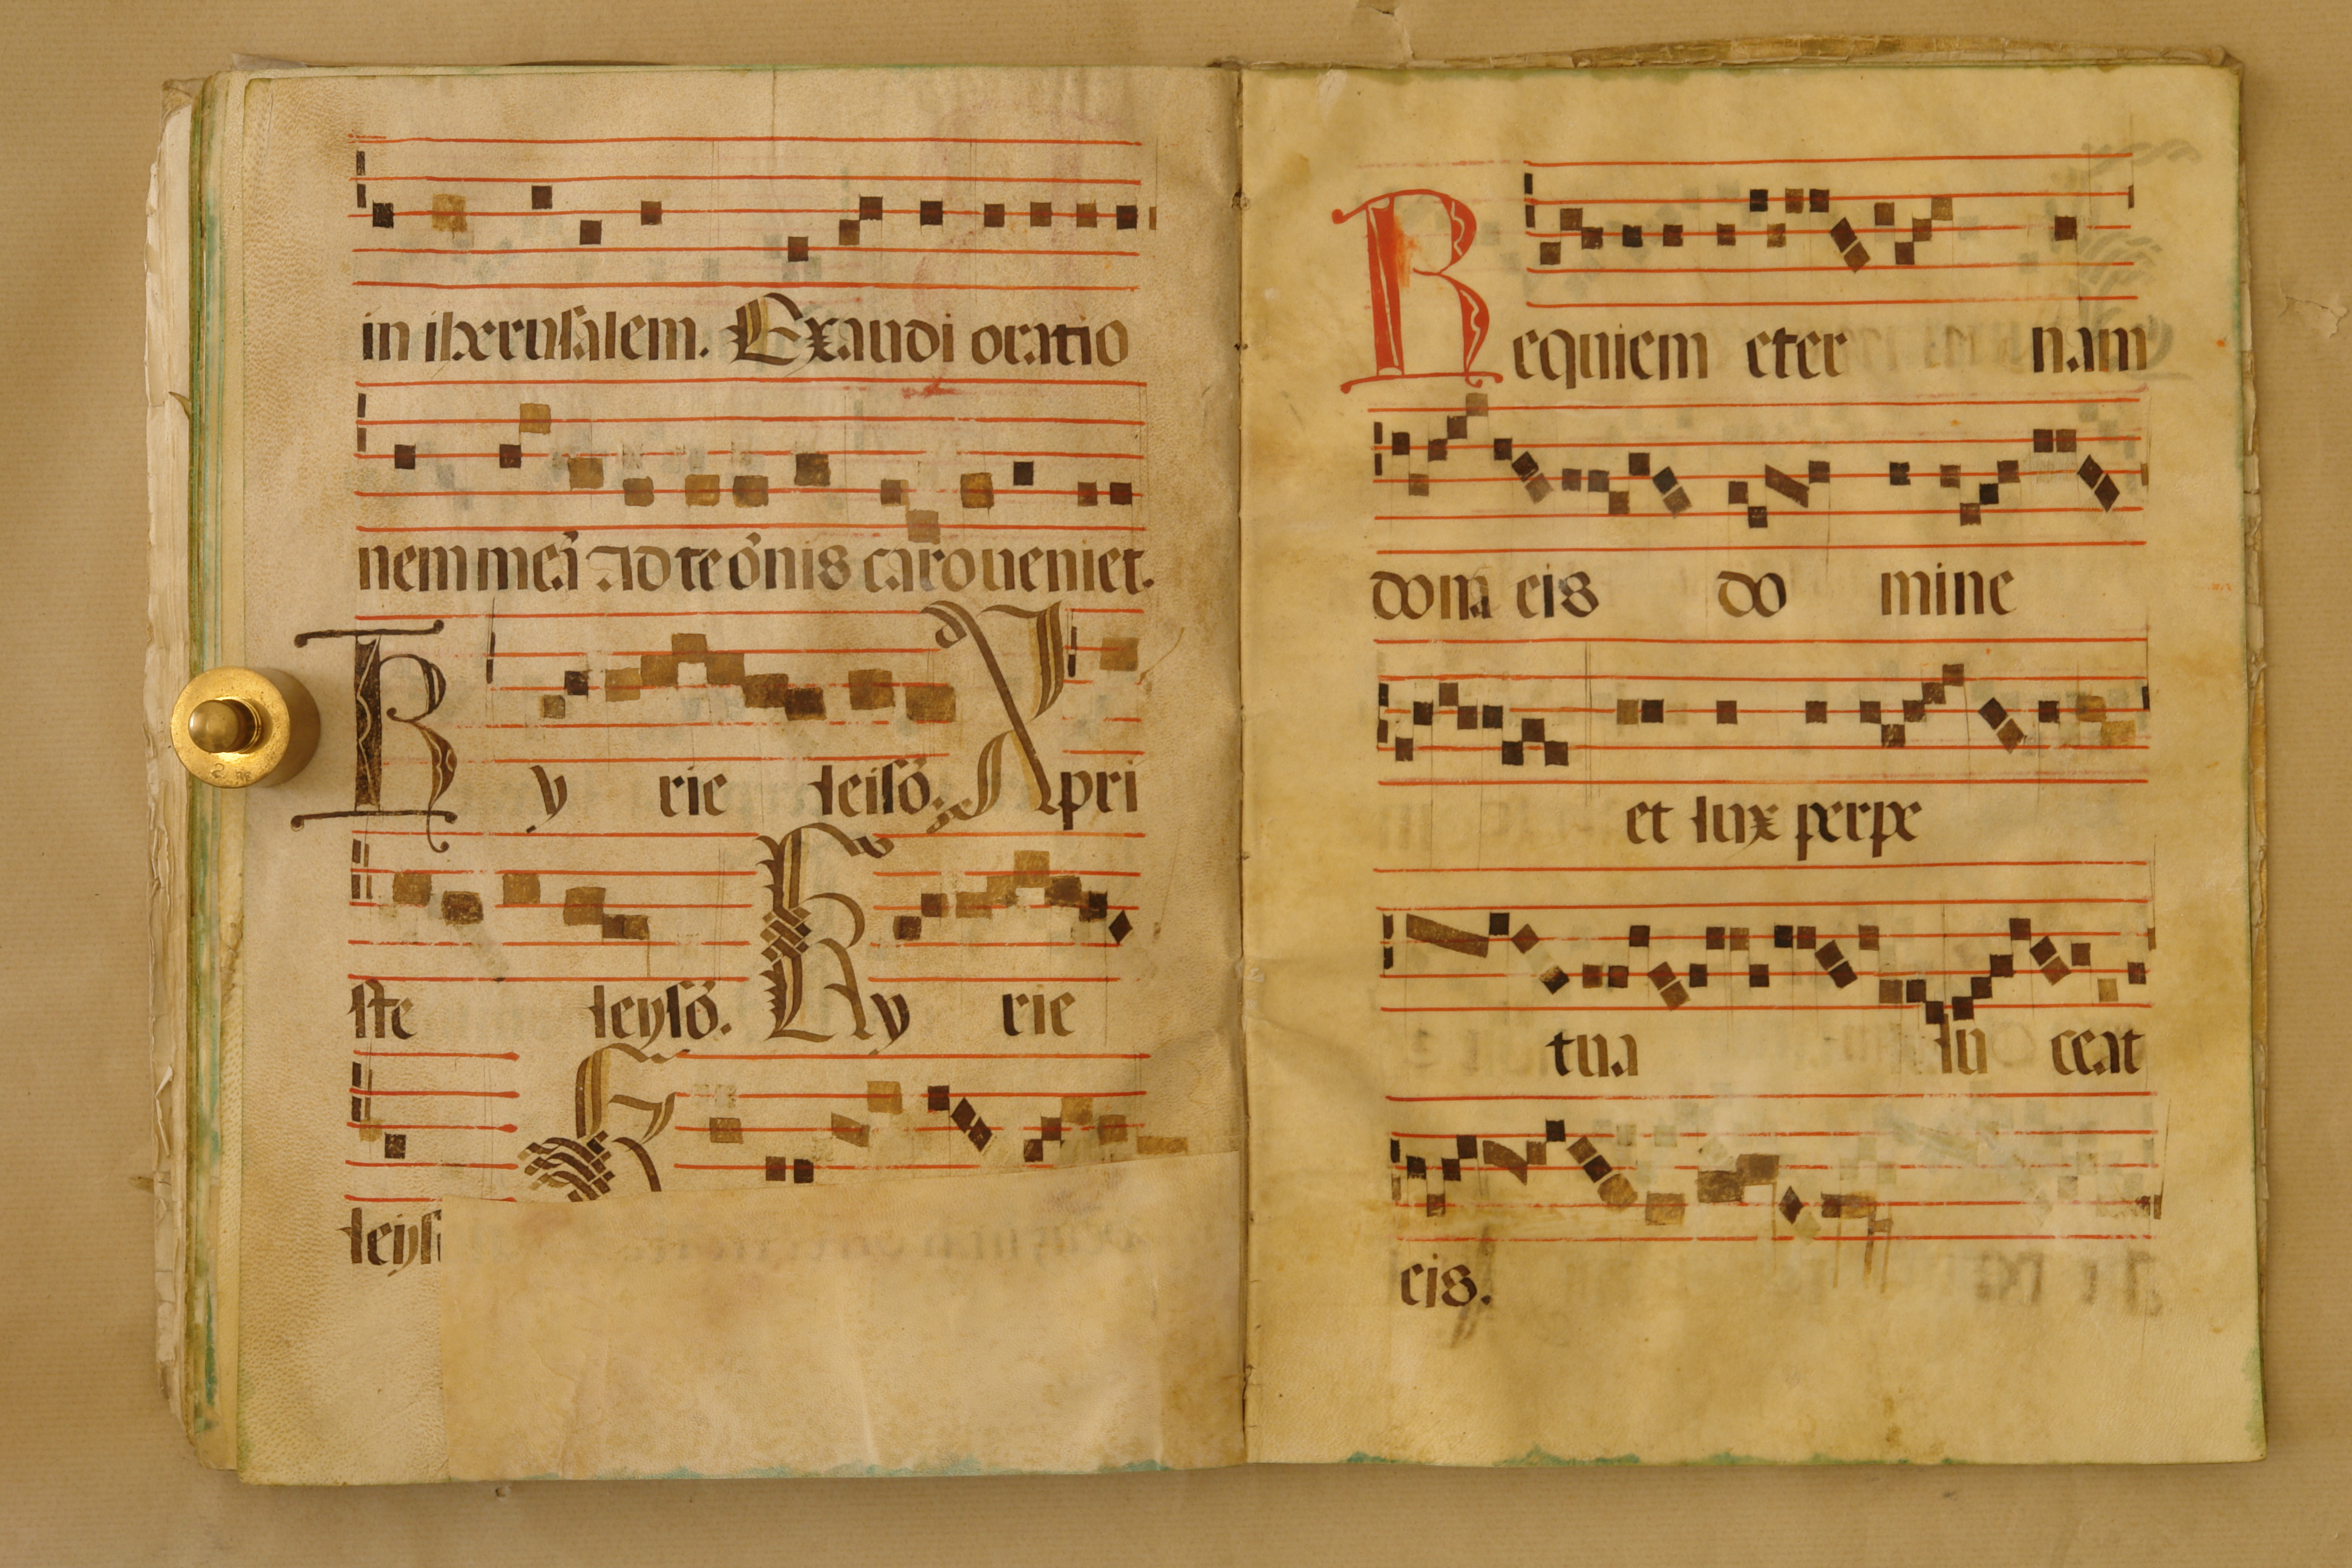 in iherusalem. Exaudi oratio
nem meã Ad te õnis caro ueniet.
Ky rie leisõ. Xpri
ste leysõ. Ky rie
leys
Requiem eter nam
dona eis do mine
et lux perpe
tua lu ceat
eis.